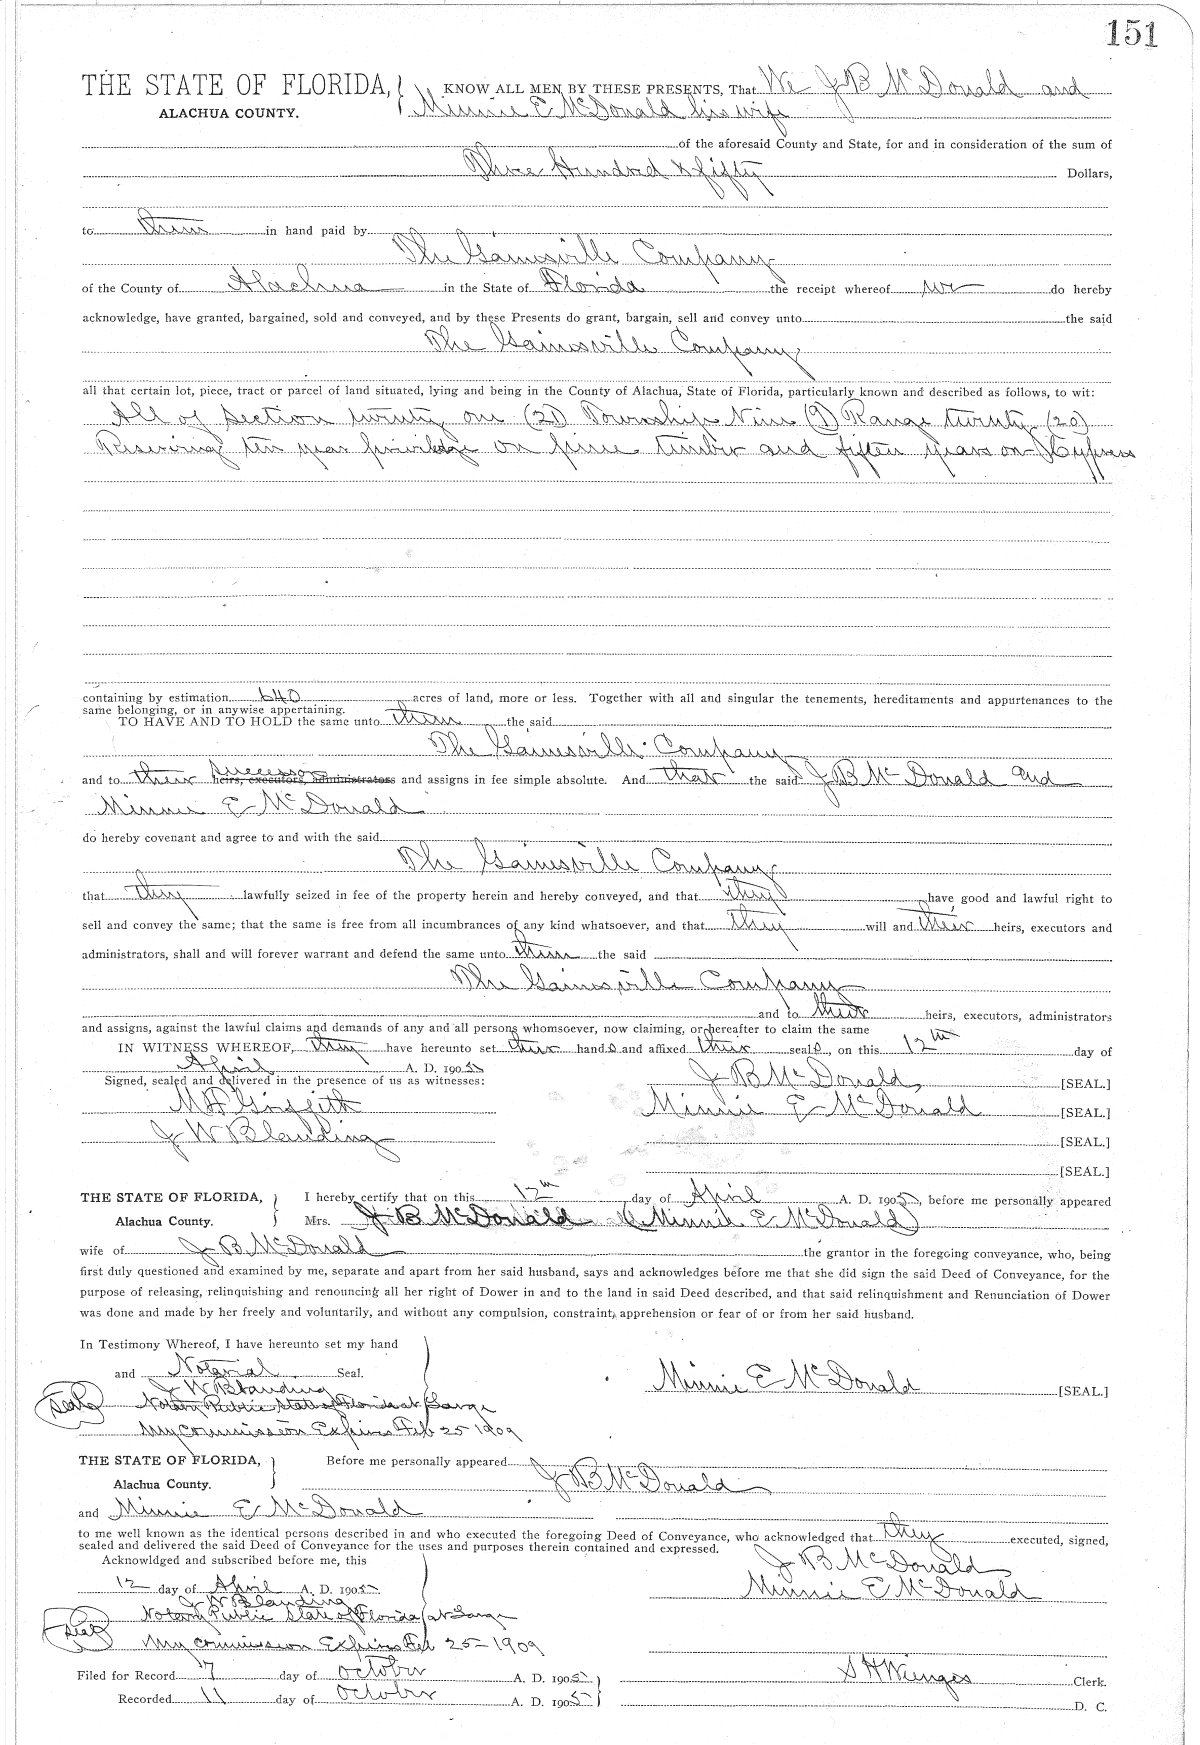 151
THE STATE OF FLORIDA, KNOW ALL MEN BY THESE PRESENTS, That We J B McDonald and
ALACHUA COUNTY. Minnie E McDonald his wife
of the aforesaid County and State, for and in consideration of the sum of
Three Hundred & fifty Dollars,
to them in hand paid by
The Gainesville Company
of the County of Alachua in the State of Florida the receipt whereof we do hereby
acknowledge, have granted, bargained, sold and conveyed, and by these Presents do grant, bargain, sell and convey unto the said
The Gainesville Company
all that certain lot, piece, tract or parcel of land situated, lying and being in the County of Alachua, State of Florida, particularly known and described as follows, to wit:
All of Section twenty one (21) Township Nine (9) Range twenty (20)
Reserving ten year priviledge on pine timber and fifteen years on Cypress
containing by estimation 640 acres of land, more or less. Together with all and singular the tenements, hereditaments and appurtenances to the
same belonging, or in anywise appertaining.
TO HAVE AND TO HOLD the same unto them the said
The Gainesville Company
and to their successors heirs, executors, administrators and assigns in fee simple absolute. And that the said J B McDonald and
Minnie E McDonald
do hereby covenant and agree to and with the said
The Gainesville Company
that they lawfully seized in fee of the property herein and hereby conveyed, and that they have good and lawful right to
sell and convey the same; that the same is free from all incumbrances of any kind whatsoever, and that they will and their heirs, executors and
administrators, shall and will forever warrant and defend the same unto them the said
The Gainesville Company
and to their heirs, executors, administrators
and assigns, against the lawful claims and demands of any and all persons whomsoever, now claiming, or hereafter to claim the same
IN WITNESS WHEREOF, they have hereunto set their hands and affixed their seals, on this 12th day of
April A. D. 1905
Signed, sealed and delivered in the presence of us as witnesses: J B McDonald [SEAL.]
Griffith Minnie E McDonald [SEAL.]
J W Blanding [SEAL.]
[SEAL.]
THE STATE OF FLORIDA, I hereby certify that on this 12th day of April A. D. 1905, before me personally appeared
Alachua County. Mrs. J B McDonald (Minnie E McDonald)
wife of J B McDonald the grantor in the foregoing conveyance, who, being
first duly questioned and examined by me, separate and apart from her said husband, says and acknowledges before me that she did sign the said Deed of Conveyance, for the
purpose of releasing, relinquishing and renouncing all her right of Dower in and to the land in said Deed described, and that said relinquishment and Renunciation of Dower
was done and made by her freely and voluntarily, and without any compulsion, constraint, apprehension or fear of or from her said husband.
In Testimony Whereof, I have hereunto set my hand
and Notarial Seal. Minnie E McDonald [SEAL.]
J W Blanding
Seal Notary Public State of Florida at Large
My commission Expires Feb 25 1909
THE STATE OF FLORIDA, Before me personally appeared J B McDonald
Alachua County.
and Minnie E McDonald
to me well known as the identical persons described in and who executed the foregoing Deed of Conveyance, who acknowledged that they executed, signed,
sealed and delivered the said Deed of Conveyance for the uses and purposes therein contained and expressed.
Acknowldged and subscribed before me, this J B McDonald
12 day of April A. D. 1905 Minnie E McDonald
J W Blanding
Notary Public State of Florida at Large
Seal My commission Expires Feb 25-1909
Filed for Record 7 day of October A. D. 1905 S H Wienges Clerk.
Recorded 11 day of October A. D. 1905 D. C.